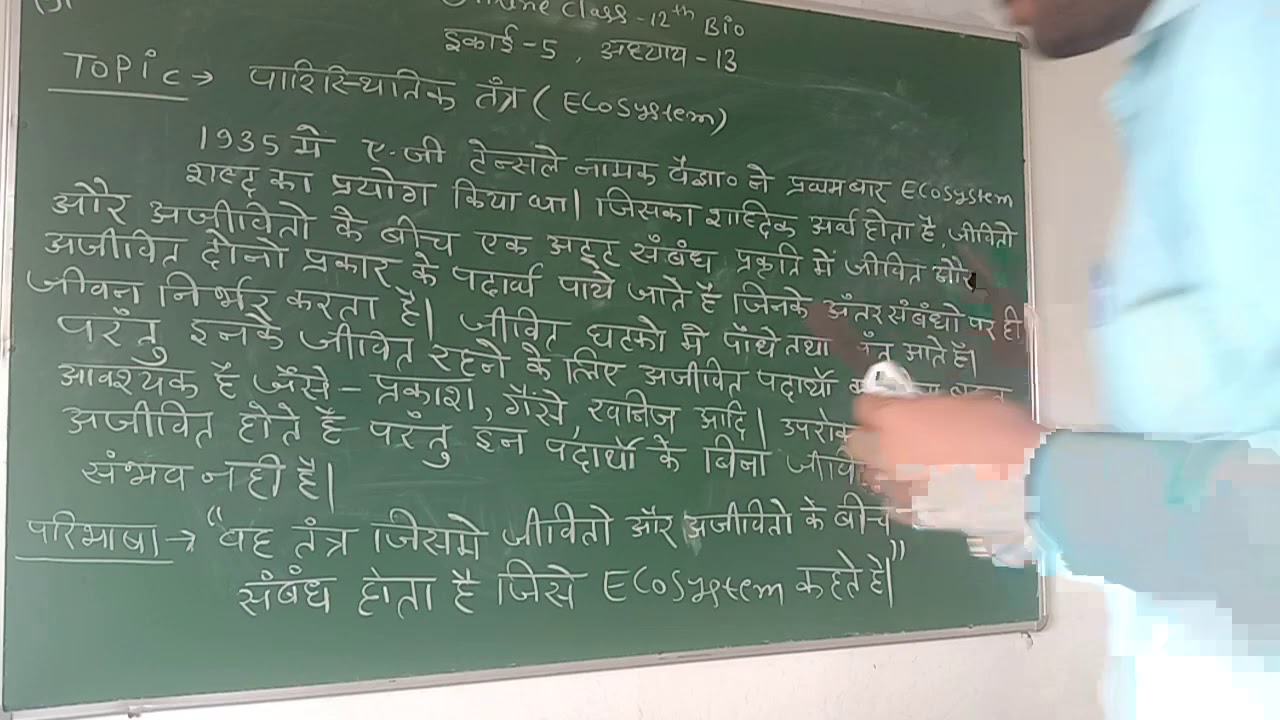 Class-12th Bio
इकाई-5, अध्याय-13
TOPic → पारिस्थितिक तंत्र (Ecosystem)
1935 मे ए.जी टेन्सले नामक वैज्ञा० ने प्रथमबार Ecosystem
शब्द का प्रयोग किया था। जिसका शाब्दिक अर्थ होता है, जीवितो
और अजीवितो के बीच एक अटूट संबंध प्रकृति में जीवित और
अजीवित दोनो प्रकार के पदार्थ पाये जाते है जिनके अंतरसंबंधो पर ही
जीवन निर्भर करता है। जीवित घटको मे पौधे तथा आते है।
परंतु इनके जीवित रहने के लिए अजीवित पदार्थो
आवश्यक है जैसे - प्रकाश, गैसे, खनिज आदि।
अजीवित होते है परंतु इन पदार्थो के बिना
संभव नही है।
परिभाषा → "वह तंत्र जिसमे जीवितो और अजीवितो के बीच
संबंध होता है जिसे Ecosystem कहते है।"